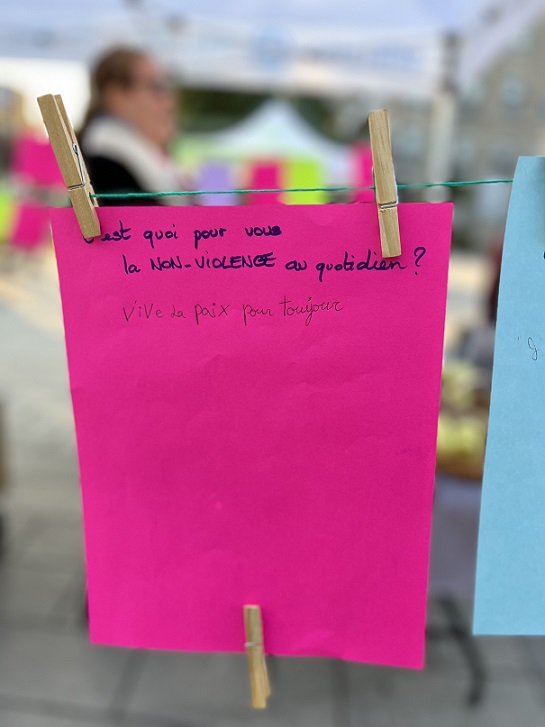 C'est quoi pour vous
la NON-VIOLENCE au quotidien ?
ViVe La paix pour toujour